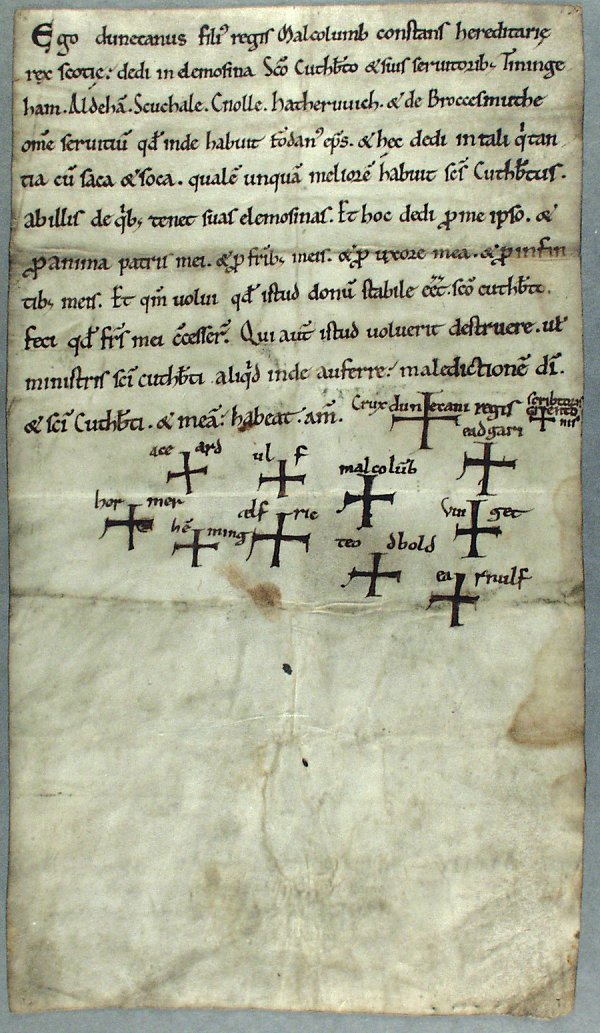 Ego dunecanus fili᾽ regis Malcolumb constans hereditarię
rex scotię: dedi in elemosina Sc̄o Cuthb̄to & suis seruitorib; Tininge
ham. Aldehā. Scuchale. Cnolle. Hatheruuich. & de Broccesmuthe
om̄e seruitiū qđ inde habuit fodan᾽ ep̄s. & hęc dedi in tali q̇tan
tia cū saca & soca. qualē unquā meliorē habuit sc̄s Cuthb̄tus.
ab illis de q̇b; tenet suas elemosinas. Et hoc dedi ꝓ me ipso. &
ꝓ anima patris mei. & ꝓ frīb; meis. & ꝓ uxore mea. & ꝓ infan
tib; meis. Et qm̄ uolui qđ istud donū stabile eēt sc̄o cuthb̄to.
feci qđ fr̄s mei c̄cesser̄. Qui aut̄ istud uoluerit destruere. ul̄
ministris sc̄i cuthb̄ti aliq̇d inde auferre: maledictionē dī.
& sc̄i Cuthb̄ti. & meā: habeat. am̄.
Crux dunecani regis
scribtoris
grentonis
eadgari
ace ard
ul f
malcolūb
hor mer
hē ming
ælf ric
uin get
teo dbold
ea rnulf